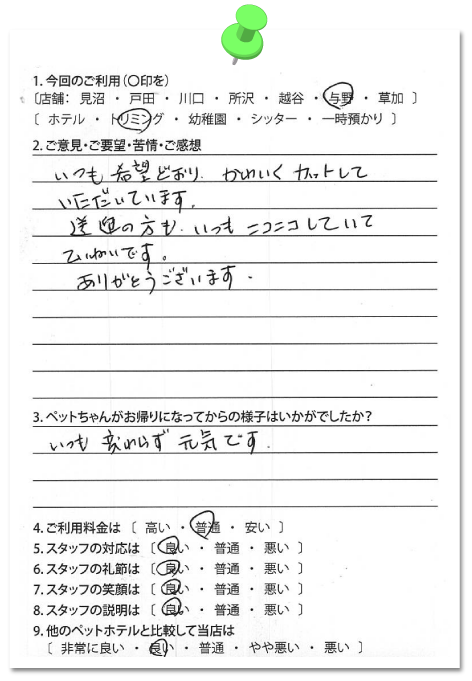 1. 今回のご利用(〇印を)
〔店舗: 見沼 ・ 戸田 ・ 川口 ・ 所沢 ・ 越谷 ・ 与野 ・ 草加 〕
〔 ホテル ・ トリミング ・ 幼稚園 ・ シッター ・ 一時預かり 〕
2. ご意見・ご要望・苦情・ご感想
いつも 希望どおり、かわいく カットして
いただいています。
送迎の方も、いつも ニコニコしていて
ていねいです。
ありがとうございます.
3. ペットちゃんがお帰りになってからの様子はいかがでしたか?
いつも 変わらず 元気です.
4. ご利用料金は 〔 高い ・ 普通 ・ 安い 〕
5. スタッフの対応は 〔 良い ・ 普通 ・ 悪い 〕
6. スタッフの礼節は 〔 良い ・ 普通 ・ 悪い 〕
7. スタッフの笑顔は 〔 良い ・ 普通 ・ 悪い 〕
8. スタッフの説明は 〔 良い ・ 普通 ・ 悪い 〕
9. 他のペットホテルと比較して当店は
〔 非常に良い ・ 良い ・ 普通 ・ やや悪い ・ 悪い 〕